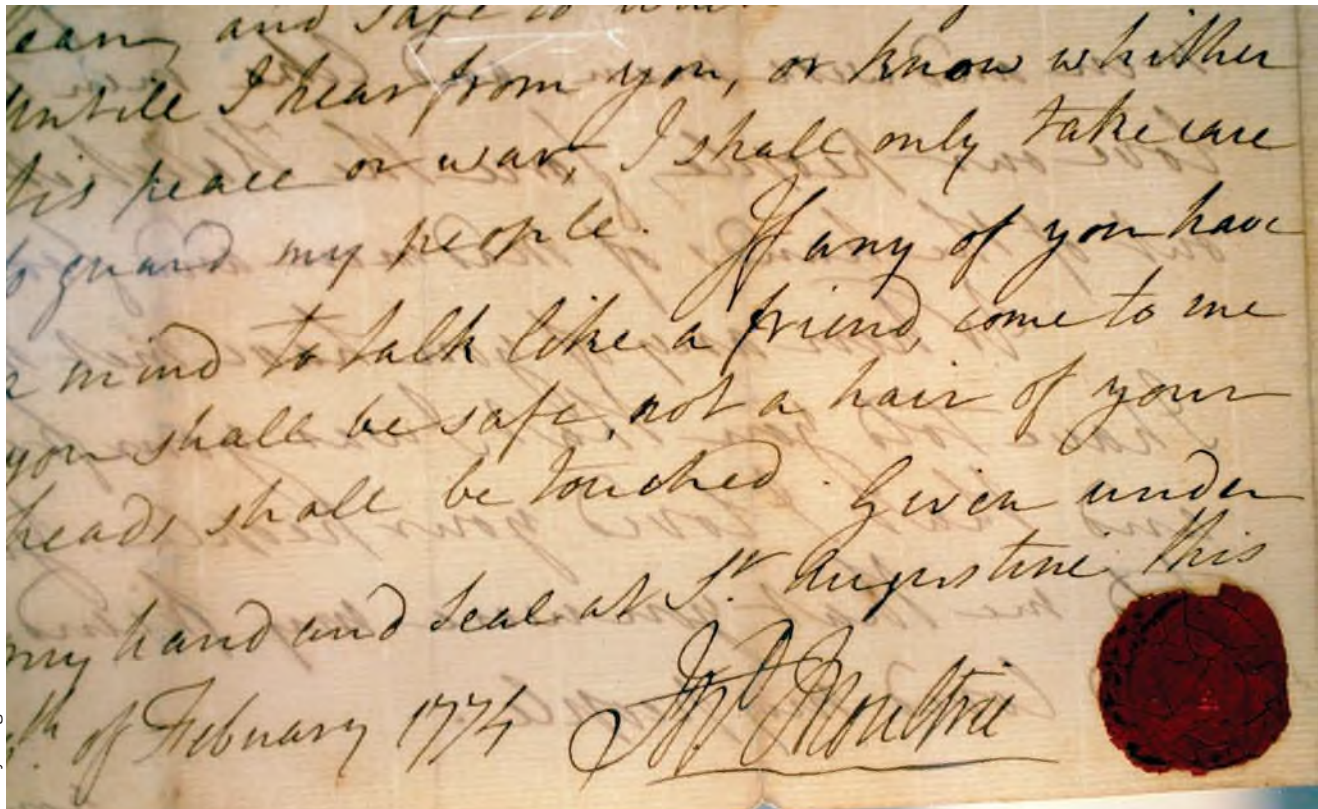 and safe to
untill I hear from you, or know whither
tis peace or war, I shall only take care
to guard my people. If any of you have
a mind to talk like a friend, come to me
you shall be safe, not a hair of your
heads shall be touched. Given under
my hand and seal at St. Augustine this
th of February 1774 Jno Moultrie